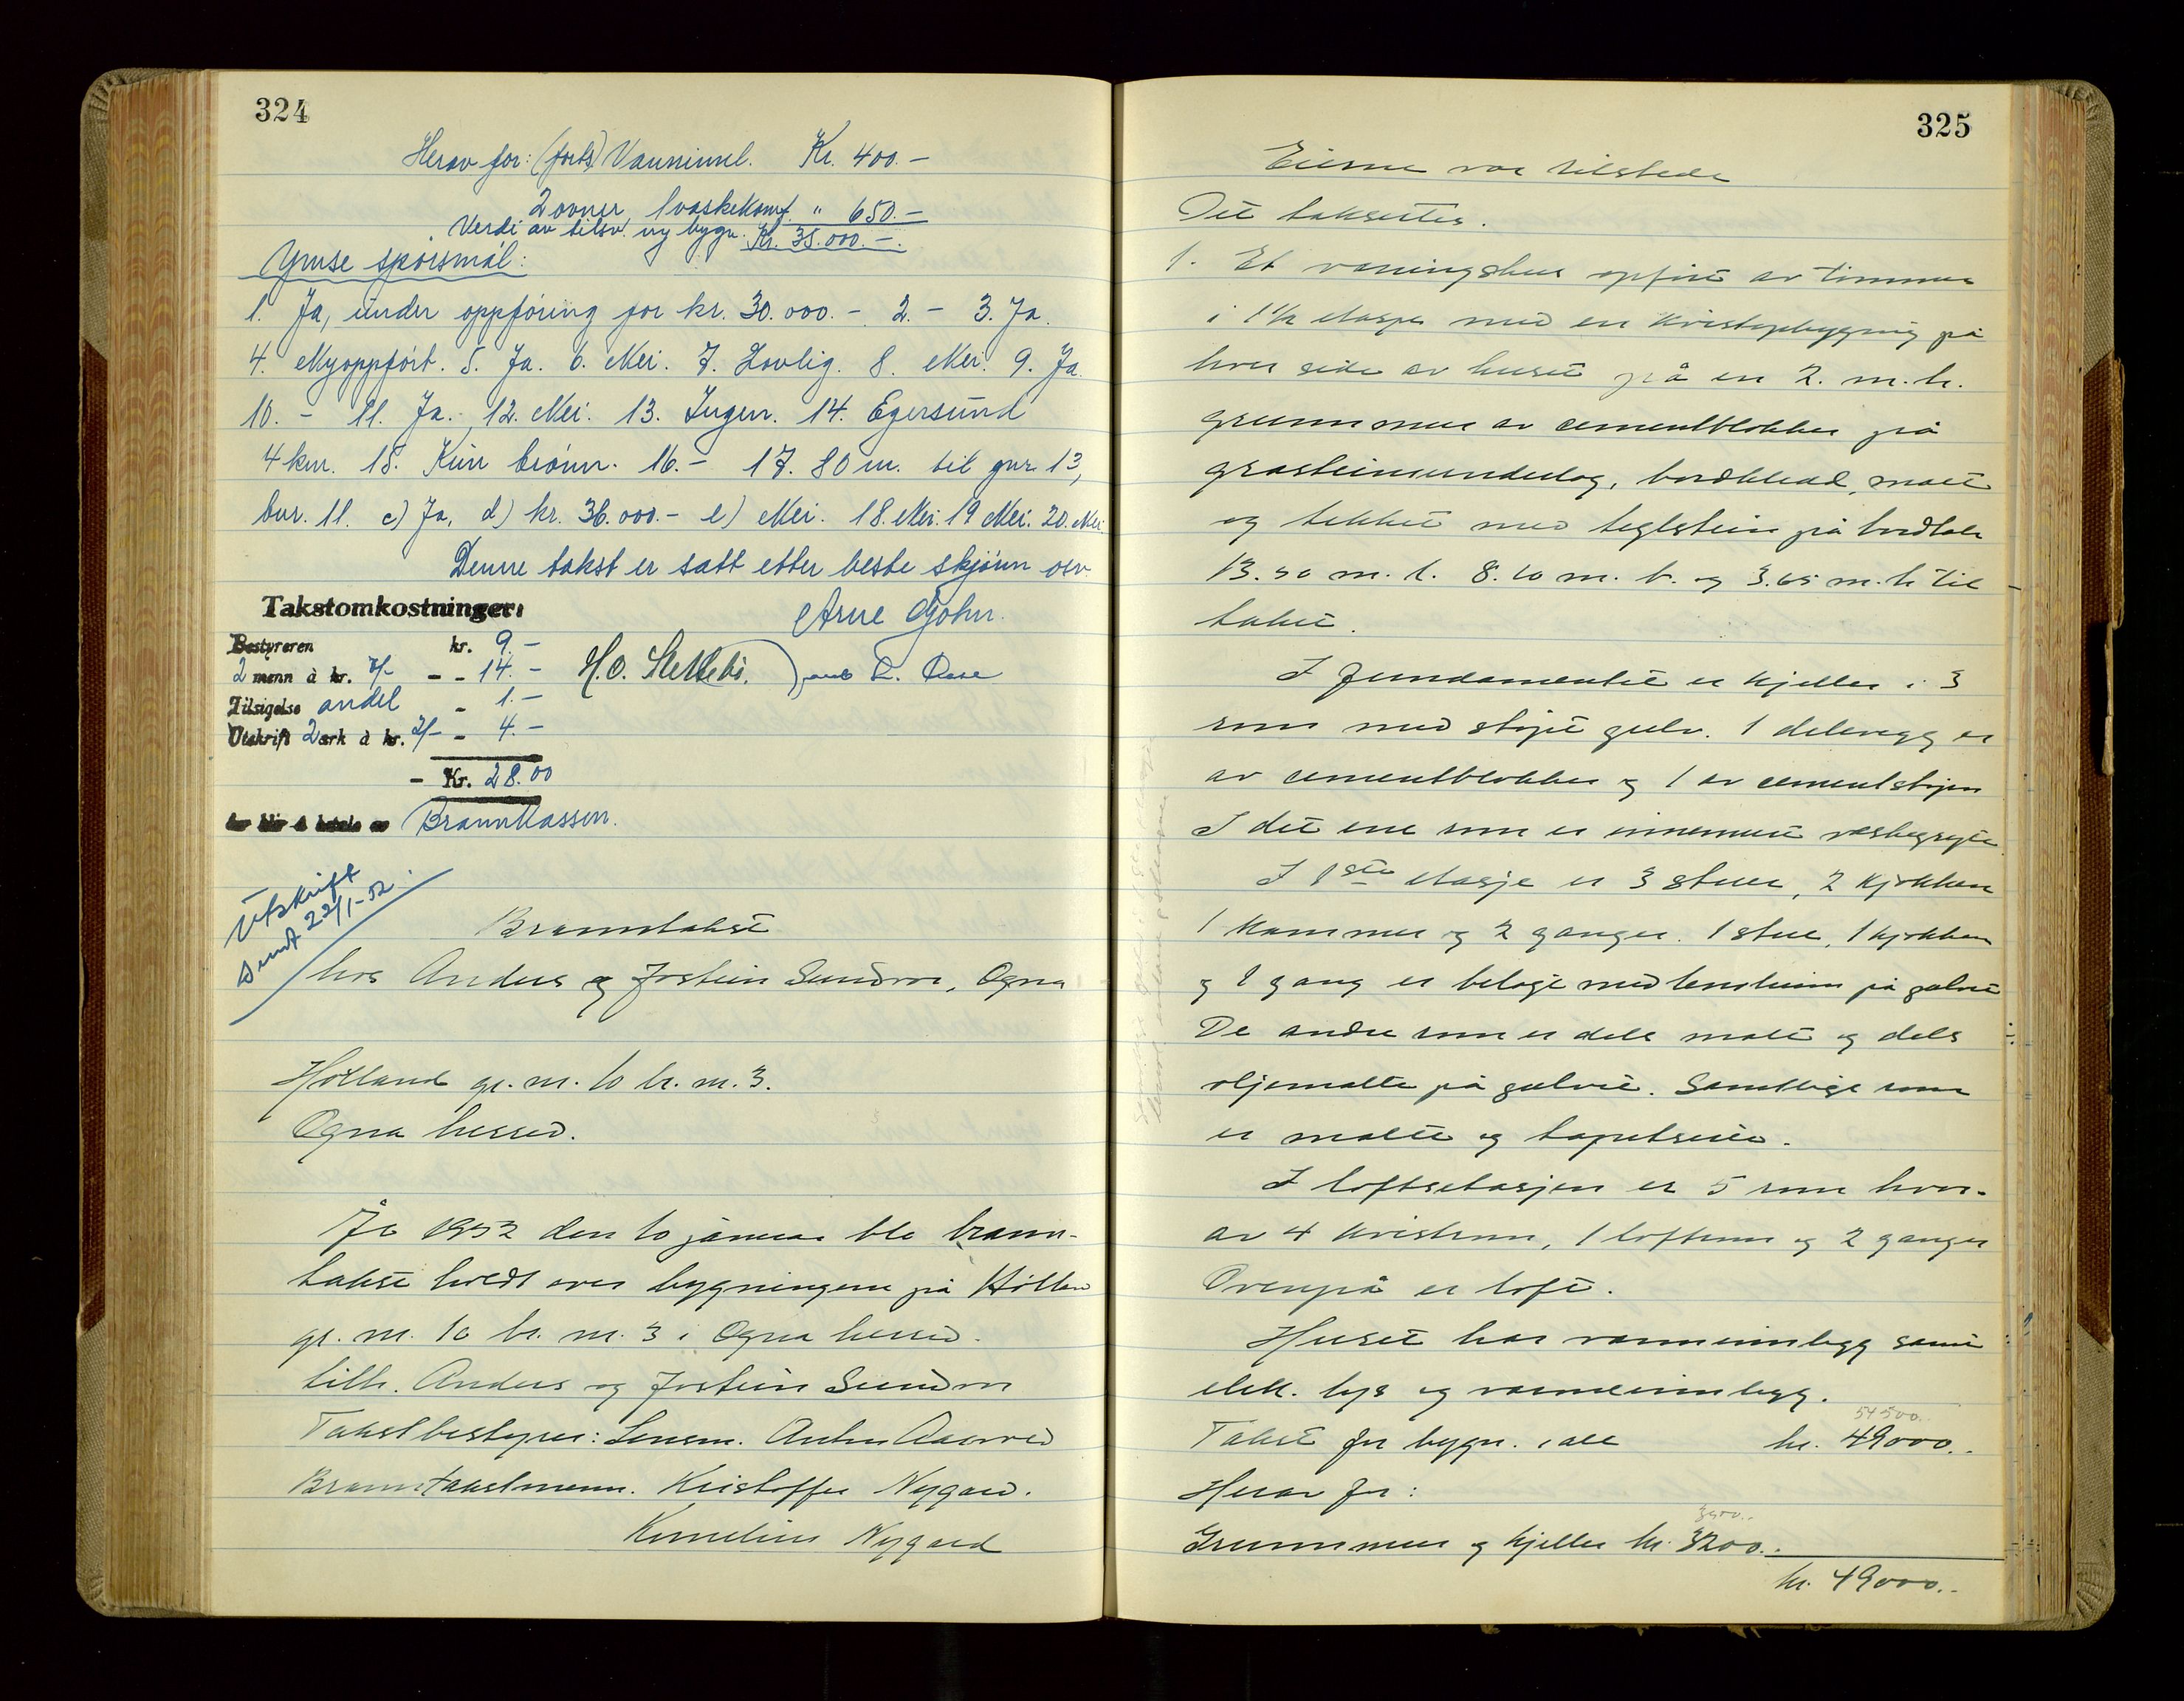 324
Herav for: (forts) Vanninnl. Kr. 400.-
2 ovner, 1 vaskekomf. " 650.-
Verdi av tilsv. ny bygn. Kr. 35.000.-.
Ymse spørsmål:
1. Ja, under oppføring for kr. 30.000.- 2. - 3. Ja.
4. Nyoppført. 5. Ja. 6. Nei. 7. Lovlig. 8. Nei. 9. Ja.
10. - 11. Ja. 12. Nei. 13. Ingen. 14. Egersund
4 km. 15. Kun brønn. 16. - 17. 80 m. til gnr 13,
bnr. 11. c) Ja, d) kr. 36.000.- e) Nei. 18. Nei. 19 Nei. 20. Nei
Denne takst er satt etter beste skjønn osv.
Takstomkostninger:
Arne Gjohn.
Bestyreren kr. 9.-
2 menn à kr. 7/- - - 14.- H.O.
Tilsigelse andel - 1.-
Utskrift 2 ark à kr. 2/- - 4.-
- Kr. 28.00
Brannkassen.
Utskrift
sendt 22/1-52.
Branntakst
hos Anders og Jostein Sundvor, Ogna
Hølland gr. nr. 10 br. nr. 3.
Ogna herred.
År 1952 den 10 januar ble brann-
takst holdt over bygningene på Hølland
gr. nr. 10 br. nr. 3 i Ogna herred.
tilh. Anders og Jostein Sundvor
Takstbestyrer: Lensm. Anton Aasrved
Branntakstmenn. Kristoffer Nygård.
Kornelius Nygaard
325
Eierne var tilstede
Det taksertes.
1. Et våningshus opført av tømmer
i 1½ etasje med en kvistopbygning på
hver side av huset på en 2. m. h.
grunnmur av cementblokker på
gråsteinsunderlag, bordkledd, malt
og tekket med teglstein på bordtak
13.50 m. l. 8.10 m. b. og 3.65 m. h til
taket.
I fundamentet er kjeller i 3
rom med støpt gulv. 1 delevegg er
av cementblokker og 1 av cementstøpen
I det ene rom er innemurt vaskegryte.
I 1ste etasje er 3 stuer, 2 kjøkken
1 kammer og 2 ganger. 1 stue, 1 kjøkken
og 1 gang er belagt med linoleum på gulvet
De andre rom er dels malt og dels
oljemalte på gulvet. Samtlige rom
er malte og tapetserte.
I loftsetasjen er 5 rom hvor-
av 4 kvistrom, 1 loftrom og 2 ganger
Ovenpå er loft.
Huset har vanninnlegg samt
elek. lys og varmeinnlegg.
54500..
Takst for bygn. i alt kr. 49000..
Herav for:
3900..
Grunnmur og kjeller kr. 3200..
kr. 49000..